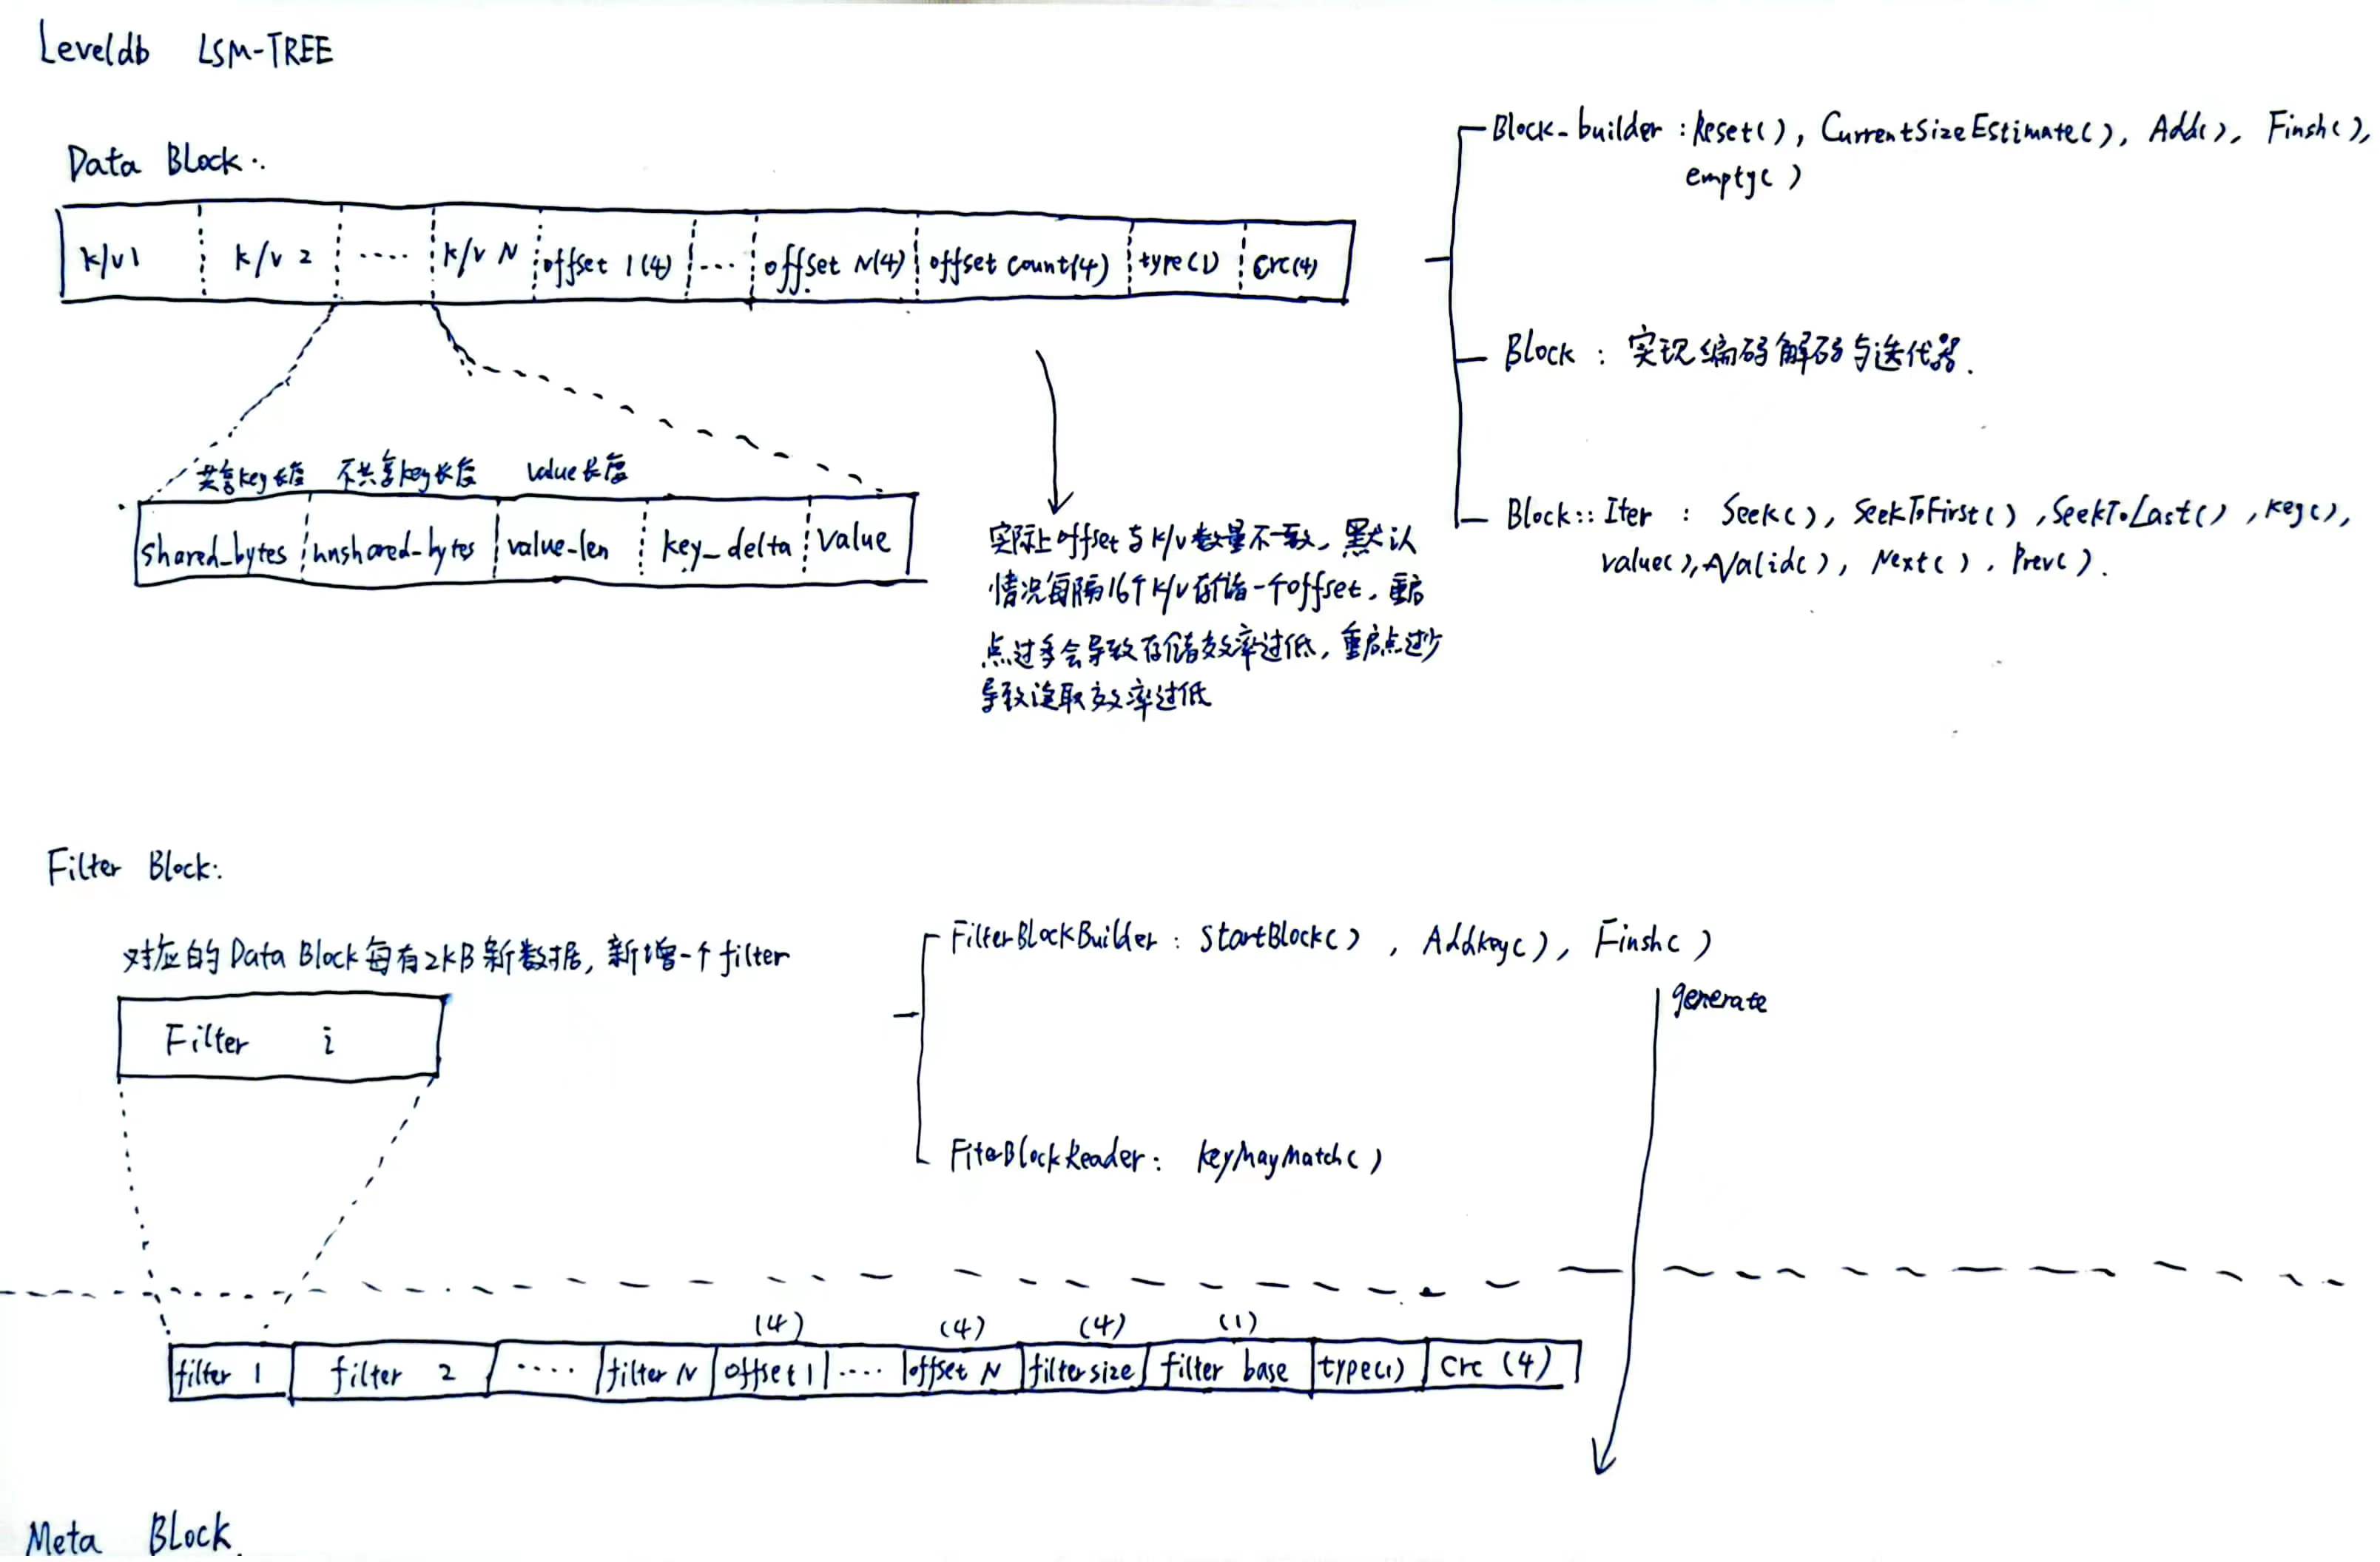 Leveldb LSM-TREE
Data Block:
k/v1 k/v 2 .... k/v N offset 1(4) ... offset N(4) offset count(4) type(1) crc(4)
共享key长度 不共享key长度 value长度
shared_bytes unshared_bytes value-len key_delta value
实际上offset与k/v数量不一致,默认
情况每隔16个k/v存储一个offset,重启
点过多会导致存储效率过低,重启点过少
导致读取效率过低
Block-builder : Reset(), CurrentSizeEstimate(), Add(), Finsh(),
empty()
Block : 实现编码解码与迭代器.
Block::Iter : Seek(), SeekToFirst(), SeekToLast(), key(),
value(), Valid(), Next(), Prev().
Filter Block:
对应的Data Block每有2KB新数据,新增一个filter
Filter i
FilterBlockBuilder : StartBlock(), AddKey(), Finsh()
generate
FiterBlockReader: KeyMayMatch()
(4) (4) (4) (1)
filter 1 filter 2 .... filter N offset1 .... offset N filtersize filter base type(1) crc (4)
Meta Block